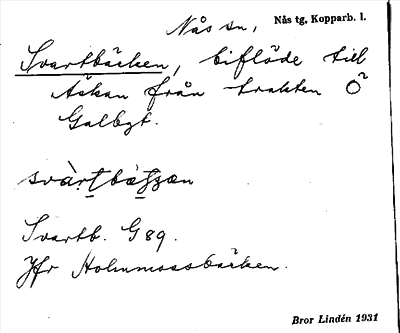 Nås sn, Nås tg, Kopparb. l.
Svartbäcken, biflöde till
Åskan från trakten Ö
Galbgt.
Svartb. G 89.
Jfr Holmmossbäcken.
Bror Lindén 1931